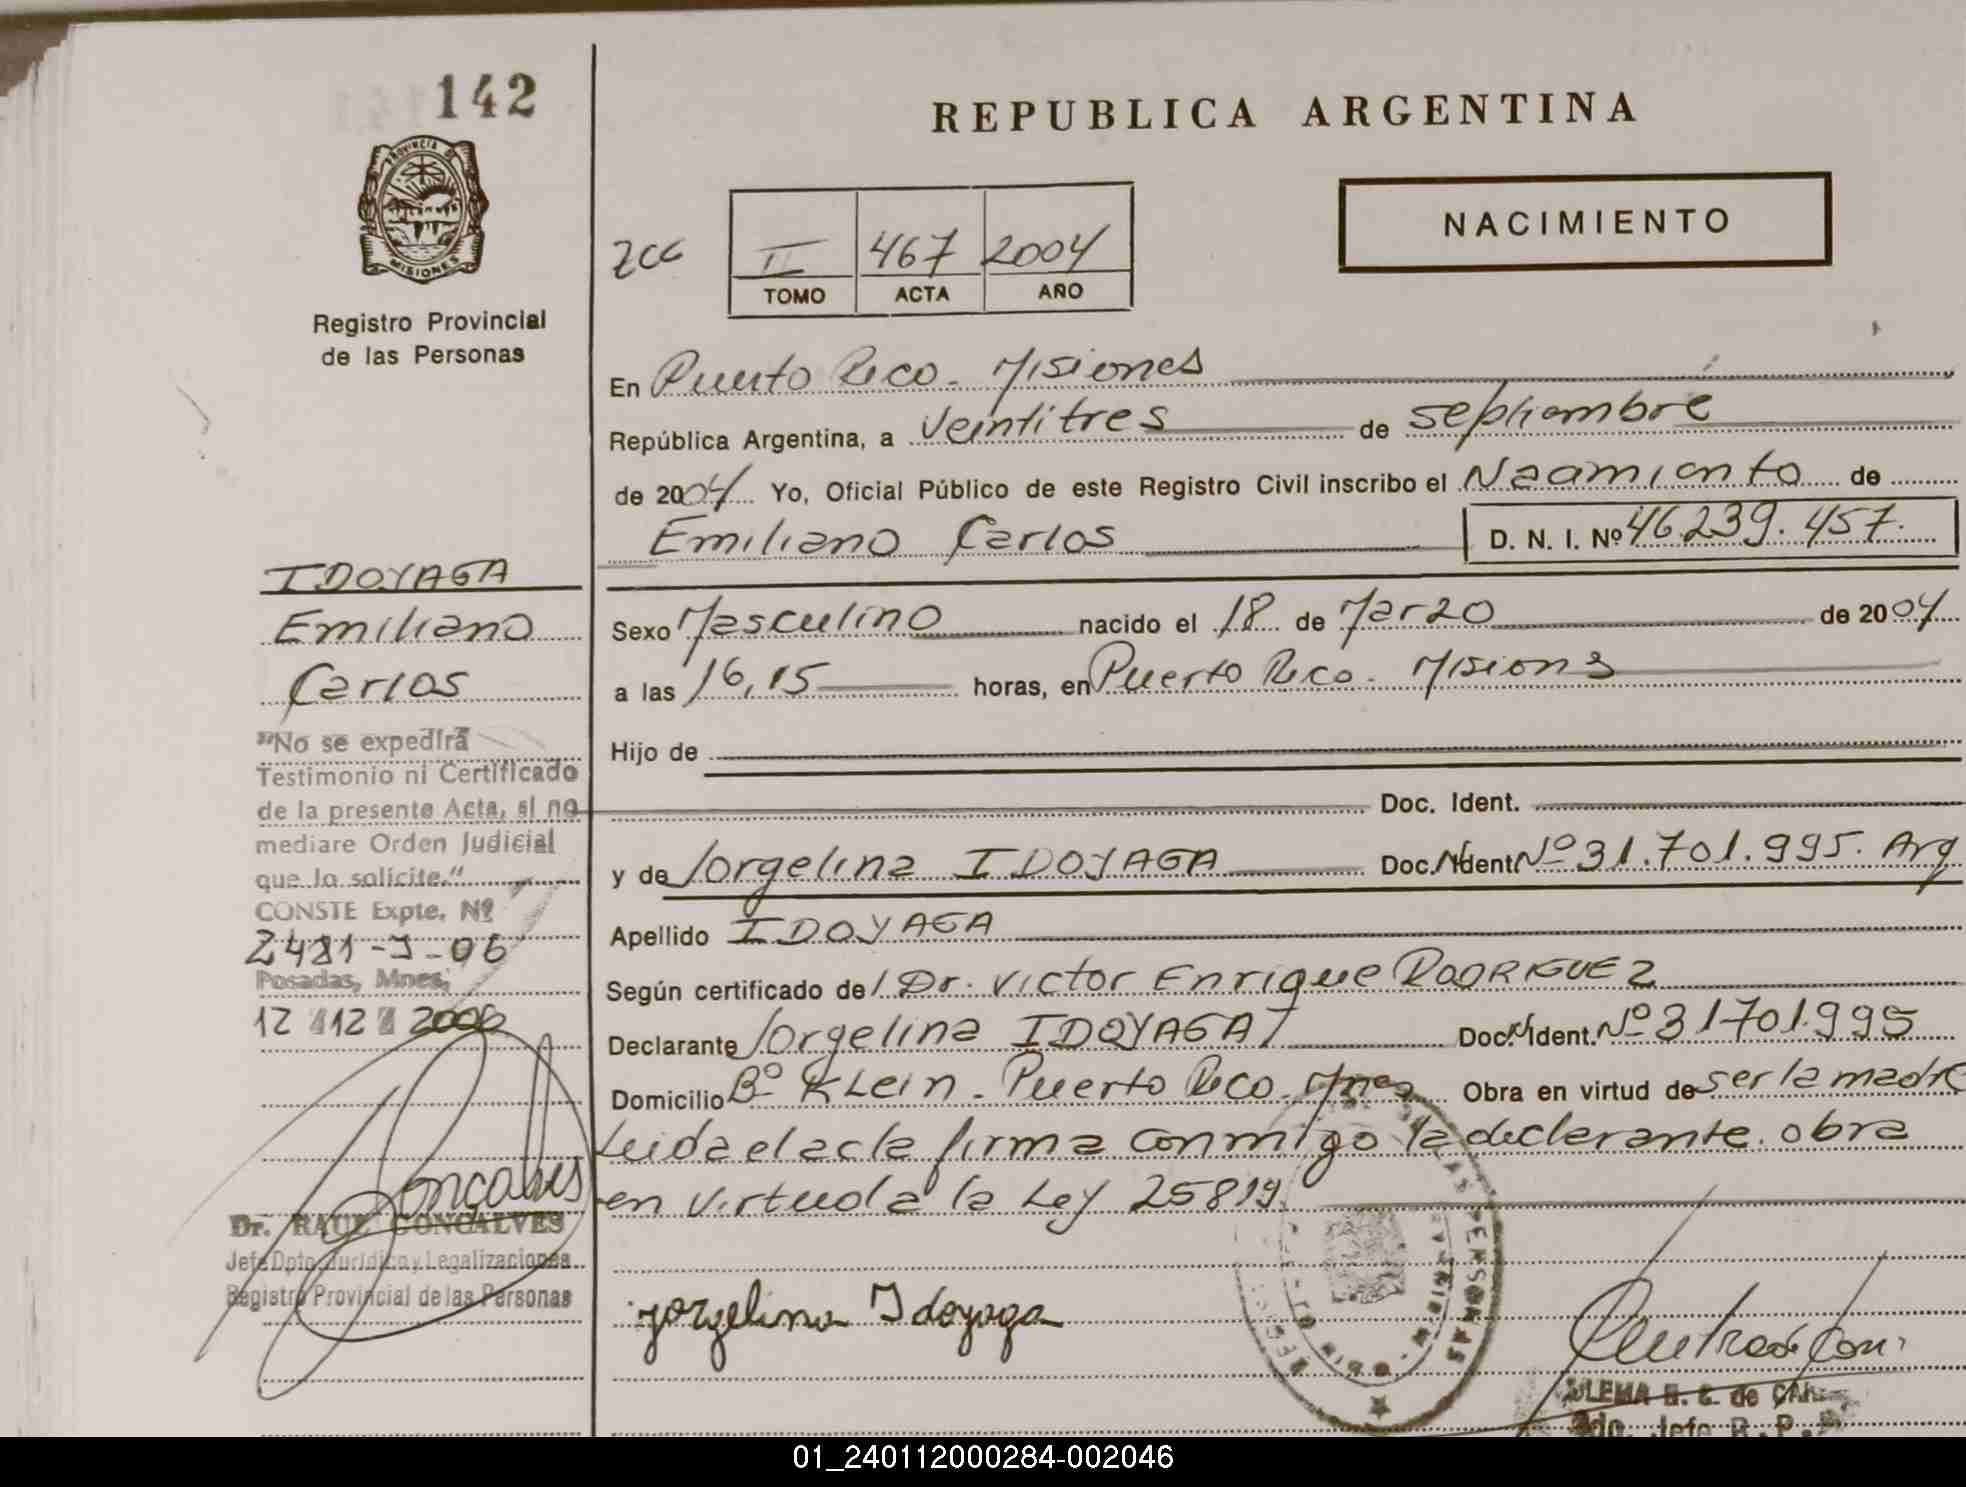 142
PROVINCIA DE
MISIONES
Registro Provincial
de las Personas
REPUBLICA ARGENTINA
NACIMIENTO
II 467 2004
TOMO ACTA AÑO
En Puerto Rico. Misiones
República Argentina, a Veintitres de septiembre
de 2004 Yo, Oficial Público de este Registro Civil inscribo el Nacimiento de
Emiliano Carlos D. N. I. Nº 46239.457.
IDOYAGA
Emiliano
Carlos
"No se expedirá
Testimonio ni Certificado
de la presente Acta, si no
mediare Orden Judicial
que lo solicite."
CONSTE Expte. Nº
2481-J-06
Posadas, Mnes;
12 12 2006
Gonçalves
Dr. RAUL GONCALVES
Jefe Dpto. Jurídico y Legalizaciones
Registro Provincial de las Personas
Sexo Masculino nacido el 18 de Marzo de 2004
a las 16,15 horas, en Puerto Rico. Misiones
Hijo de
Doc. Ident.
y de Jorgelina IDOYAGA Doc. Ident Nº 31.701.995. Arg
Apellido IDOYAGA
Según certificado del Dr. Victor Enrique RODRIGUEZ
Declarante Jorgelina IDOYAGA Doc. Ident. Nº 31701.995
Domicilio Bº KLein. Puerto Rico. Mnes Obra en virtud de ser la madre
Leida el acta firma conmigo la declarante. obra
en virtud a la Ley 25819.
jorgelina Idoyaga
ULEMA E. de
Jefe R. P.
01_240112000284-002046